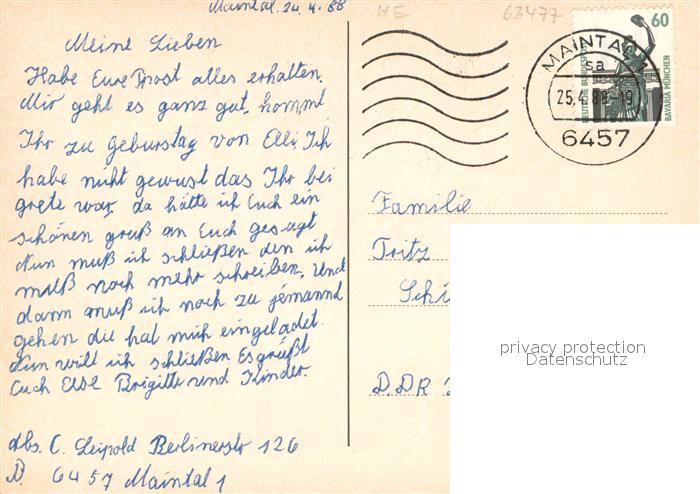 Maintal. 24. 4. 88
HE 63477
Meine Lieben
Habe Eure Prost alles erhalten,
Mir geht es ganz gut, kommt
Ihr zu Geburstag von Elli. Ich
habe nicht gewust das Ihr bei
grete war. da hätte ich Euch ein
schönen gruß an Euch gesagt
Nun muß ich schließen den ich
muß noch mehr schreiben. Und
dann muß ich noch zu jemannd
gehen die hat mich eingeladet.
Nun will ich schließen. Es grüßt
Euch Brigitte und Kinder.
Abs. C. Leipold Berlinerstr 126
D. 6457 Maintal 1
60
DEUTSCHE BUNDESPOST
BAVARIA MÜNCHEN
MAINTAL
sa
25.4.88-19
6457
Familie
Fritz
Schi
D.D.R
privacy protection
Datenschutz